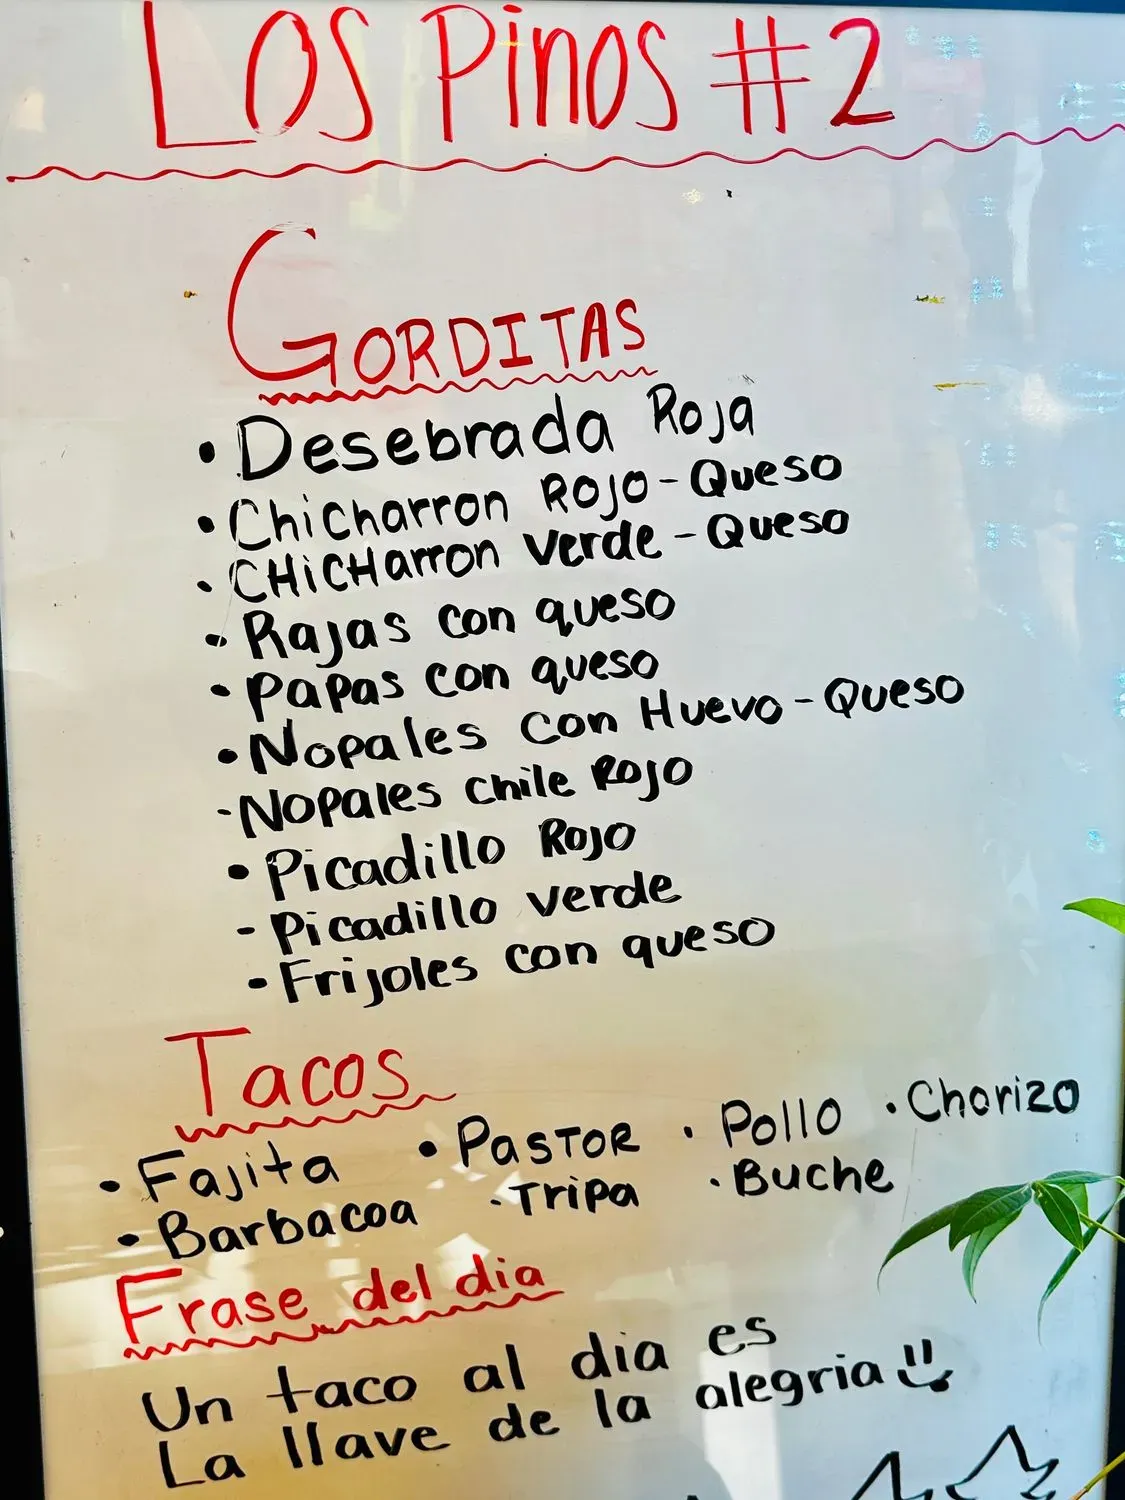 Los Pinos #2
GORDITAS
• Desebrada Roja
• Chicharron Rojo - Queso
• CHicHarron verde - Queso
• Rajas con queso
• Papas con queso
• Nopales con Huevo - Queso
- Nopales chile Rojo
• Picadillo Rojo
- Picadillo verde
- Frijoles con queso
Tacos
• Fajita • PASTOR • Pollo • Chorizo
• Barbacoa • Tripa • Buche
Frase del dia
Un taco al dia es
La llave de la alegria